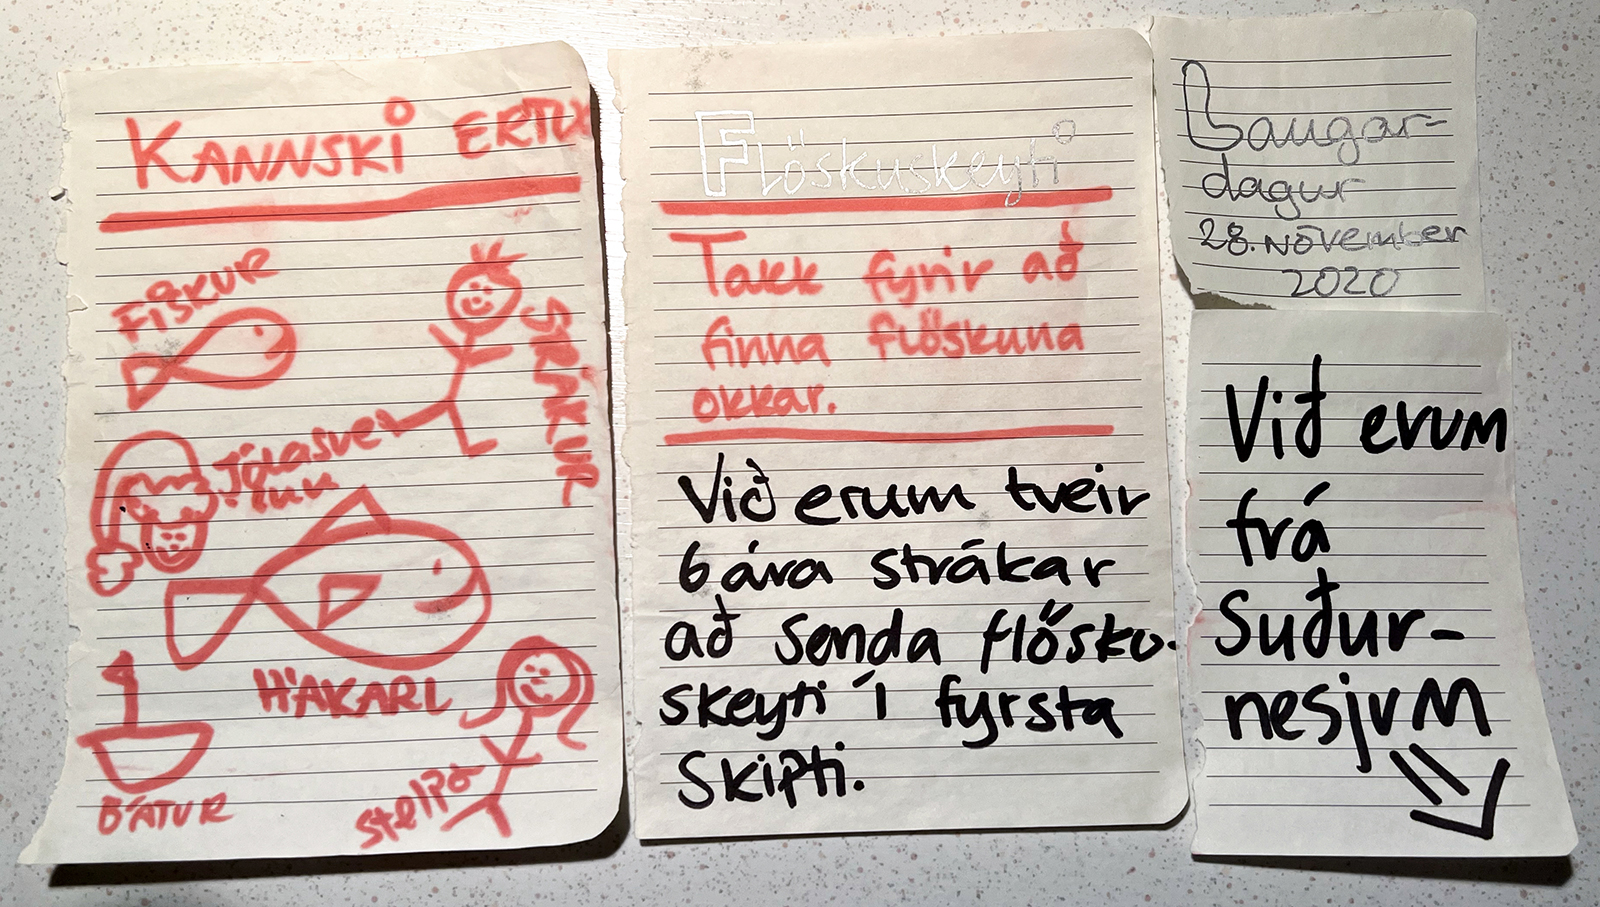 KANNSKI ERTU
FISKUR
STRÁKUR
Jólasvei
inn
HÁKARL
BÁTUR
stelpa
Flöskuskeyti
Takk fyrir að
finna flöskuna
okkar.
Við erum tveir
6 ára strákar
að senda flösku-
skeyti í fyrsta
Skipti.
Laugar-
dagur
28. NÓVEMBER
2020
Við erum
frá
Suður-
nesjum